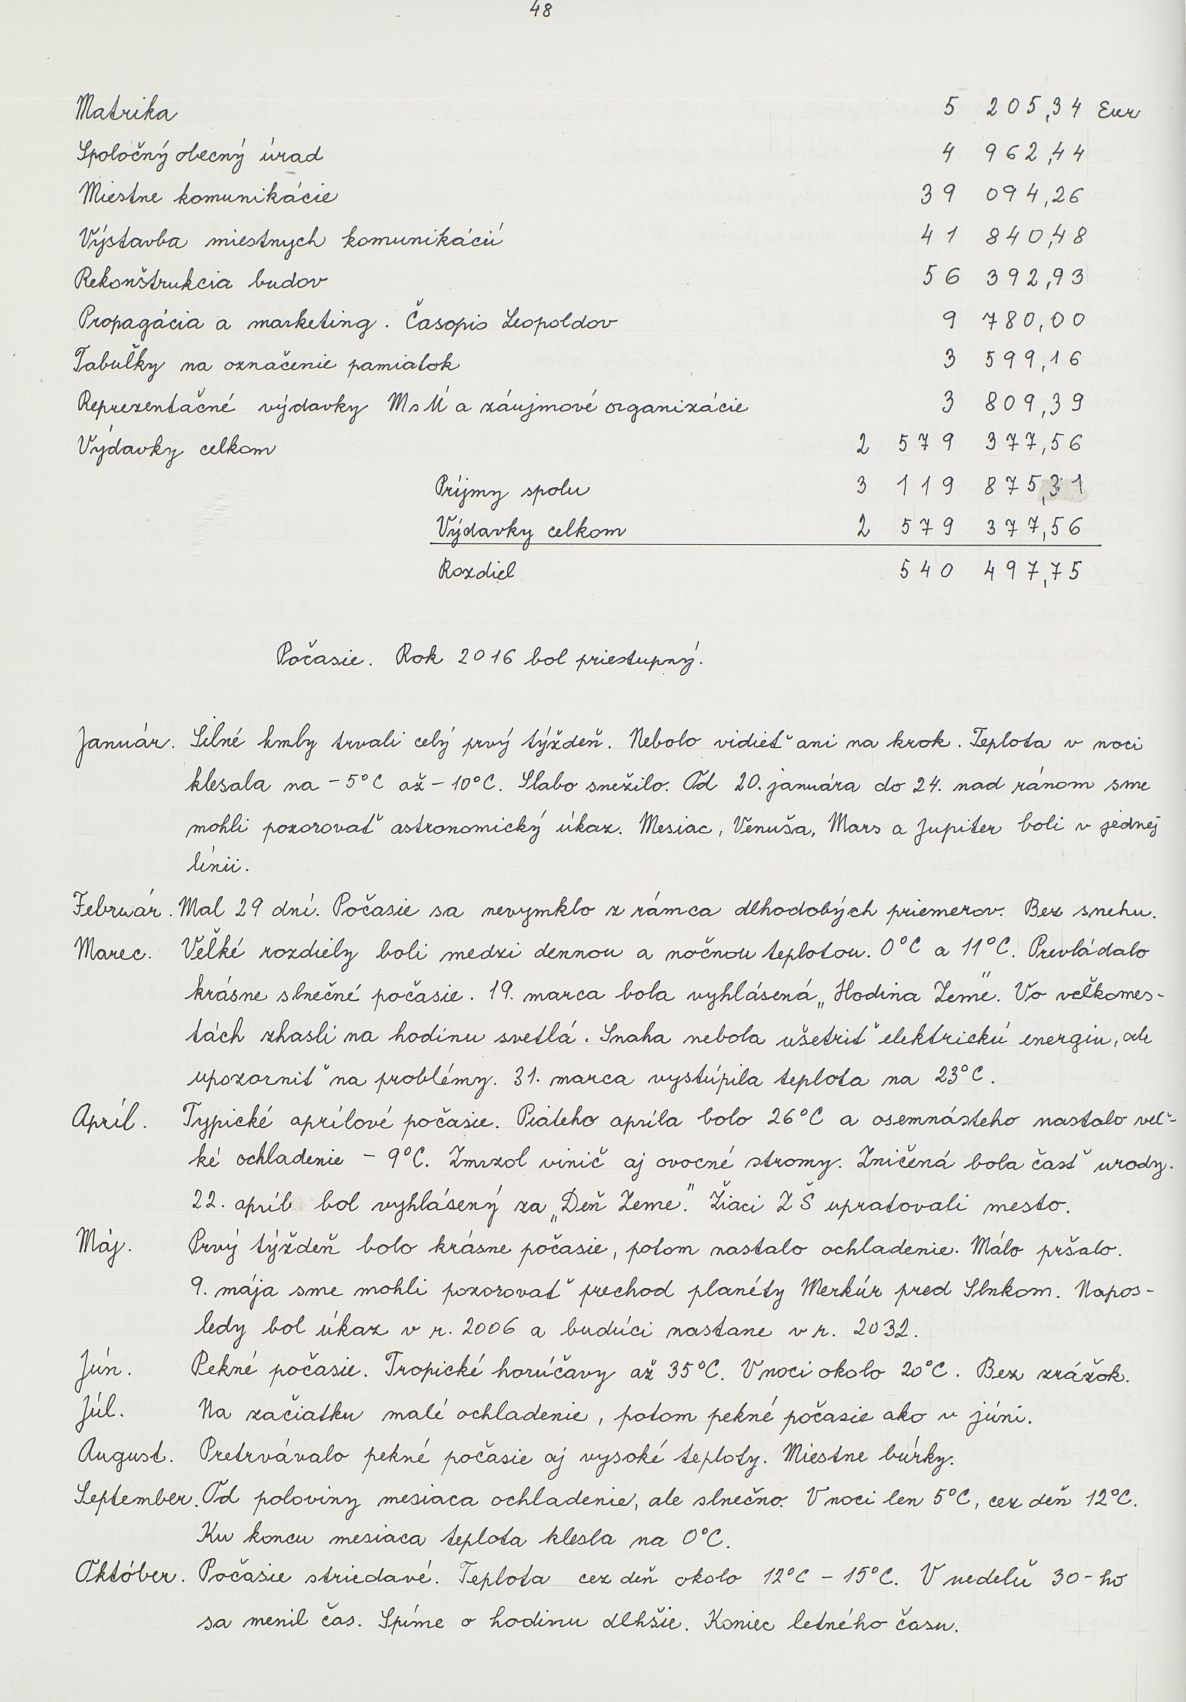 48
Matrika 5 205,34 Eur
Spoločný obecný úrad 4 962,44
Miestne komunikácie 39 094,26
Výstavba miestnych komunikácií 41 840,48
Rekonštrukcia budov 56 392,93
Propagácia a marketing. Časopis Leopoldov 9 780,00
Tabuľky na označenie pamiatok 3 599,16
Reprezentačné výdavky MsÚ a záujmové organizácie 3 809,39
Výdavky celkom 2 579 377,56
Príjmy spolu 3 119 875,31
Výdavky celkom 2 579 377,56
Rozdiel 540 497,75
Počasie. Rok 2016 bol priestupný.
Január. Silné hmly trvali celý prvý týždeň. Nebolo vidieť ani na krok. Teplota v noci
klesala na -5°C až -10°C. Slabo snežilo. Od 20. januára do 24. nad ránom sme
mohli pozorovať astronomický úkaz. Mesiac, Venuša, Mars a Jupiter boli v jednej
línii.
Február. Mal 29 dní. Počasie sa nevymklo z rámca dlhodobých priemerov. Bez snehu.
Marec. Veľké rozdiely boli medzi dennou a nočnou teplotou. 0°C a 11°C. Prevládalo
krásne slnečné počasie. 19. marca bola vyhlásená „Hodina Zeme". Vo veľkomes-
tách zhasli na hodinu svetlá. Snaha nebola ušetriť elektrickú energiu, ale
upozorniť na problémy. 31. marca vystúpila teplota na 23°C.
Apríl. Typické aprílové počasie. Piateho apríla bolo 26°C a osemnásteho nastalo veľ-
ké ochladenie - 9°C. Zmrzol vinič aj ovocné stromy. Zničená bola časť urody.
22. apríla bol vyhlásený za „Deň Zeme". Žiaci ZŠ upratovali mesto.
Máj. Prvý týždeň bolo krásne počasie, potom nastalo ochladenie. Málo pršalo.
9. mája sme mohli pozorovať prechod planéty Merkúr pred Slnkom. Napos-
ledy bol úkaz v r. 2006 a budúci nastane v r. 2032.
Jún. Pekné počasie. Tropické horúčavy až 35°C. V noci okolo 20°C. Bez zrážok.
Júl. Na začiatku malé ochladenie, potom pekné počasie ako v júni.
August. Pretrvávalo pekné počasie aj vysoké teploty. Miestne búrky.
September. Od poloviny mesiaca ochladenie, ale slnečno. V noci len 5°C, cez deň 12°C.
Ku koncu mesiaca teplota klesla na 0°C.
Október. Počasie striedavé. Teplota cez deň okolo 12°C - 15°C. V nedeľu 30-ho
sa menil čas. Spíme o hodinu dlhšie. Koniec letného času.